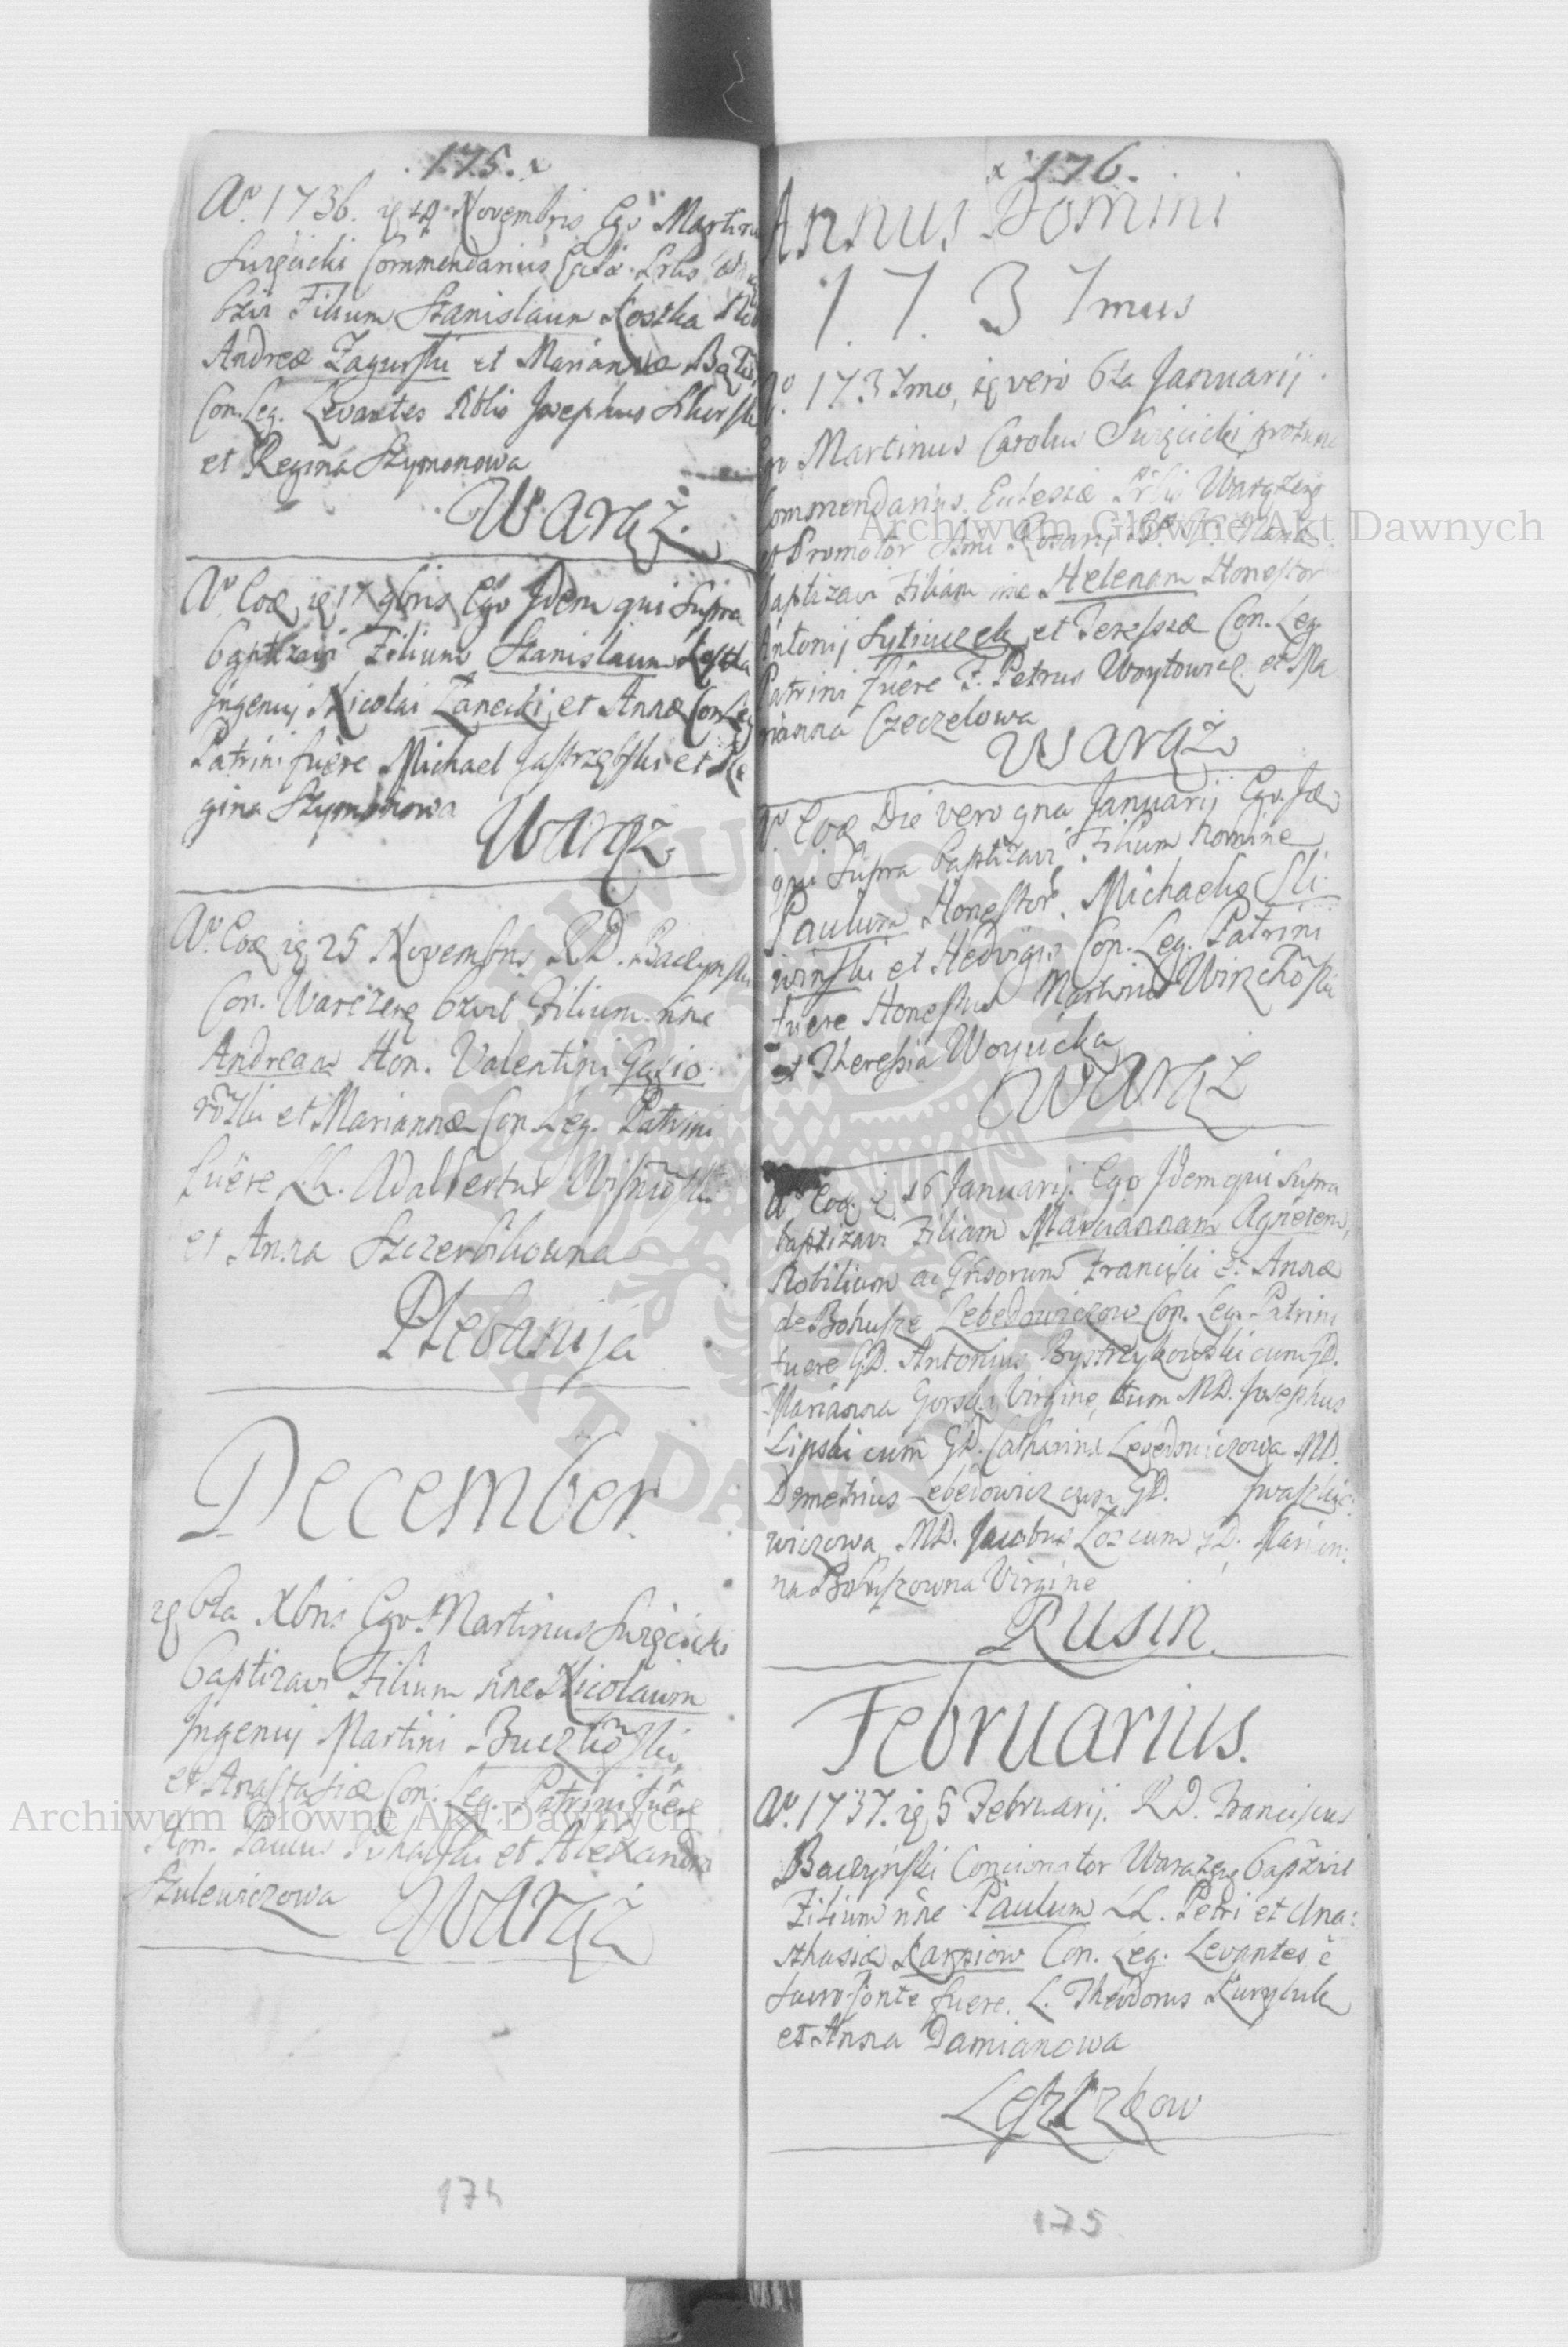 .175.
Ao. 1736. Novembris Ego Martin
Swięcicki Commendarius
Filium Stanislaum Kostka
Andreæ Zagurski et Mariannæ
Con. Leg. Levantes Nblis Josephus
et Regina Szymonowa
Waręż.
Ao. Eoq 9bris Ego Idem qui Supra
baptizavi Filium Stanislaum Kostka
Ingenuj Nicolai Zanecki et Annæ Con Leg
Patrini fuêre Michael Jastrzębski et Re
gina Szymonowa
Waręż
Ao. Eoq 25 Novembris RD. Baczynski
Con. Waręzen bzvit Filium nne
Andream Hon. Valentini Gasio
et Mariannæ Con. Leg. Patrini
fuêre LL. Adalbertus
et Anna
Plebanija
December
6ta Xbris Ego Martinus Swięcicki
baptizavi Filium nne Nicolaum
Ingenuj Martini
et Anastasiæ Con: Leg. Patrini fuêre
Hon. Paulus et Alexandra
Szulewiczowa
Waręż
174
176.
Annus Domini
1737mus
1737mo, vero 6ta Januarij
Martinus Carolus Swięcicki protunc
Commendarius Ecclesiæ
et Promotor Rosarij
baptizavi Filiam nne Helenam Honestor
Antonij et Teressæ Con. Leg.
Patrini fuêre F. Petrus Woytowicz et Ma
rianna Czeczelowa
Waręż
Ao. Eoq Die vero 9na Januarij Ego
qui Supra baptizavi Filium nomine
Paulum Honestor. Michaelis Sli
winski et Hedvigis Con. Leg. Patrini
fuere Honestus Martinus
et Theressia Woyucka
Waręż
Ao Eoq 16 Januarij. Ego Idem qui Supra
baptizavi Filiam Mariannam Agnetem,
Nobilium ac Gnsorum Francisci et Annæ
de Bohusze Lebedowiczow Con. Leg. Patrini
fuere GD. Antonius Bystrzykowski cum GD.
Marianna Gorska Virgine, tum MD. Josephus
Lipski cum GD. Catharina Lebedowiczowa MD.
Demetrius Lebedowicz cum GD. Iwaszkie
wiczowa, MD. Jacobus Łoz cum GD. Marian:
na Bohuszowna Virgine
Rusin.
Februarius.
Ao. 1737. 5 Februarij. RD. Franciscus
Baczyński Concionator
Filium nne Paulum LL. Petri et Ana:
sthasiæ Karpiow Con. Leg. Levantes è
sacro fonte fuere. L. Theodorus Kuryluk
et Anna Damianowa
Leszczkow
175
Archiwum Główne Akt Dawnych
Archiwum Główne Akt Dawnych
ARCHIWUM GŁÓWNE AKT DAWNYCH